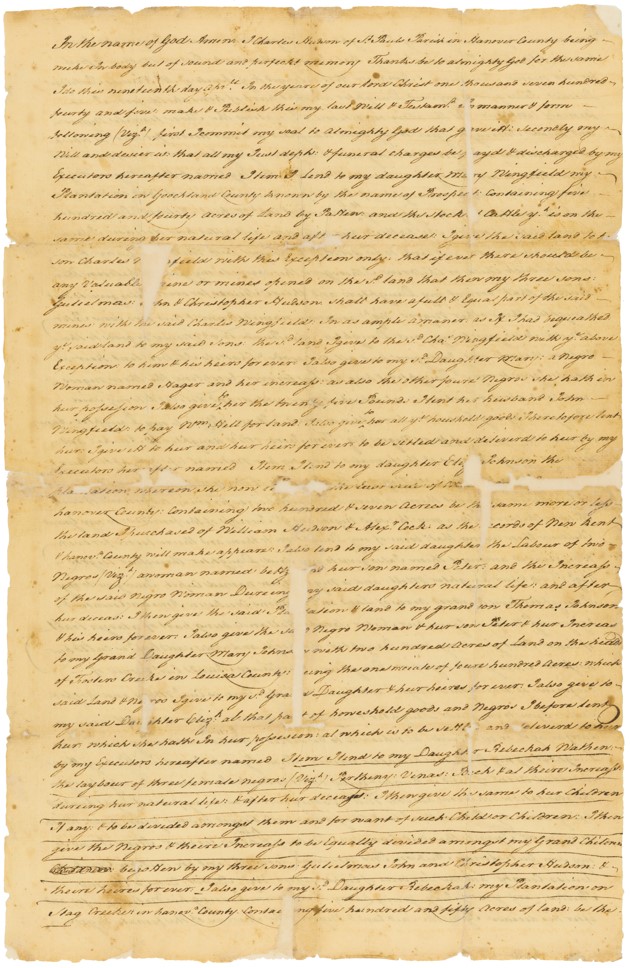 In the name of God Amen I Charles Hudson of St. Pauls Parish in Hanover County being
weke In body but of sound and perfect memory Thanks be to almighty God for the same
I do this nineteenth day In the yeare of our lord Christ one thousand seven hundred
fourty and five make & Publish this my last Will & Testamt. In manner & form
following (Vizt.) first I commit my soal to Almighty God that gave it: Secondly my
Will and desier is: that all my Just depts: & funeral charges be payd & discharged by my
Executors hereafter named Item I lend to my daughter Mary Wingfield my
Plantation in Goochland County known by the name of Prospect: Containing five
hundred and fourty Acres of Land by Patten and the stock & Cattle yt. is on the
same dureing her natural life and aft her decease I give the said land to
son Charles field with this Exception only: that if ever there should be
any Valuable mine or mines opened on the sd. land that then my three sons:
Gulielmas John & Christopher Hudson shall have a full & Equal part of the said
mines with the said Charles Wingfield: In as ample a maner as If I had bequathed
ye. said land to my said Sons the sd. land I give to the sd. Chas. Wingfield with ye. above
Exception to him & his heirs for ever: I also give to my sd. Daughter Mary: a Negro
Woman named Hager and her increase: as also the other foure Negros she hath in
hur possesion I also give to her the twenty five Pound I lent her husband John
Wingfield to pay Wm. Hill for land: I also give to her all ye. houshold goods I heretofore lent
hur: I give It to hur and hur heirs for ever: to be setled and deliverd to hur by my
Executors here after named Item I lend to my daughter Eliz Johnson the
plantation whereon she now
hanover County: Containing two hundred & seven Acres be the same more or less
the land I purchased of William Hudson & Alexr. Cock: as the records of New Kent
& hanr. County will make appeare: I also lend to my said daughter the Labour of two
Negros (Vizt.) a woman named betty and hur son named Peter: and the Increase
of the said Negro Woman Dureing my said daughters natural life: and after
hur deceas: I then give the said Plantation & land to my grand son Thomas Johnson
& his heirs for ever: I also give the said Negro Woman & hur son Peter & hur Increas
to my Grand Daughter Mary Johnson with two hundred Acres of Land on the heads
of Fosters Creeke in Louisa County: being the one moiete of foure hundred Acres: which
said Land & Negros I give to my sd. Grand Daughter & hur heires for ever: I also give to
my said Daughter Elizt. al that part of howshold goods and Negros I before lent
hur: which she hath In hur possesion: al which is to be settled and deliverd to hur
by my Executors hereafter named Item I lend to my Daughter Rebeckah Wathen
the laybour of three female negros (Vizt.) Partheny: Venas: & al theire Increase
dureing hur natural life: & after hur decease: I then give the same to hur Children
If any: & to be divided amongst them and for want of such Child or Children: I then
give the Negros & theire Increase to be Equally divided amongst my Grand Children
begotten by my three sons Gulielmas John and Christopher Hudson: &
theire heires for ever: I also give to my sd. Daughter Rebeckah: my Plantation on
Stag Creeke in hanr. County: Containing five hundred and fifty Acres of land: be the